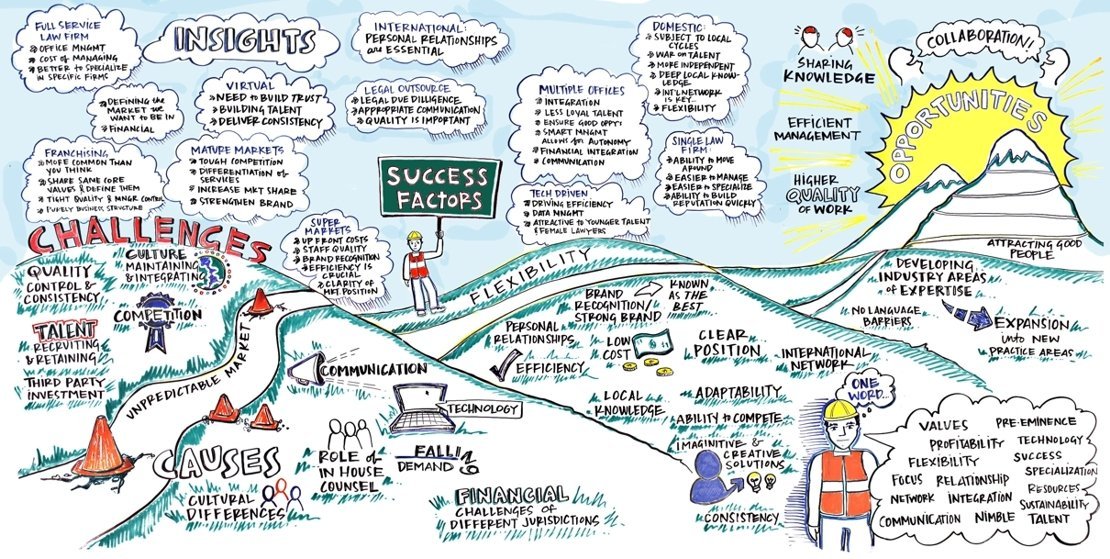 FULL SERVICE
LAW FIRM
OFFICE MNGMT
COST OF MANAGING
BETTER to SPECIALIZE
IN SPECIFIC FIRMS
INSIGHTS
INTERNATIONAL:
PERSONAL RELATIONSHIPS
are ESSENTIAL
DOMESTIC:
SUBJECT TO LOCAL
CYCLES
WAR on TALENT
MORE INDEPENDENT
DEEP LOCAL KNOW-
LEDGE
INT'L NETWORK
IS KEY...
FLEXIBILITY
DEFINING the
MARKET WE
WANT to BE IN
FINANCIAL
VIRTUAL
NEED to BUILD TRUST
BUILDING TALENT
DELIVER CONSISTENCY
LEGAL OUTSOURCE
LEGAL DUE DILLIGENCE
APPROPRIATE COMMUNICATION
QUALITY IS IMPORTANT
MULTIPLE OFFICES
INTEGRATION
LESS LOYAL TALENT
ENSURE GOOD OPPTS
SMART MNGMT
ALLOWS for AUTONOMY
FINANCIAL INTEGRATION
COMMUNICATION
FRANCHISING
MORE COMMON THAN
YOU THINK
SHARE SAME CORE
VALUES & DEFINE THEM
TIGHT QUALITY & MNGR CONTROL
PURELY BUSINESS STRUCTURE
MATURE MARKETS
TOUGH COMPETITION
DIFFERENTIATION OF
SERVICES
INCREASE MKT SHARE
STRENGTHEN BRAND
SINGLE LAW
FIRM:
ABILITY to MOVE
AROUND
EASIER to MANAGE
EASIER to SPECIALIZE
ABILITY to BUILD
REPUTATION QUICKLY
TECH DRIVEN
DRIVING EFFICIENCY
DATA MNGMT
ATTRACTIVE to YOUNGER TALENT
& FEMALE LAWYERS
SUPER
MARKETS
UP FRONT COSTS
STAFF QUALITY
BRAND RECOGNITION
EFFICIENCY IS
CRUCIAL
CLARITY OF
MKT POSITION
SUCCESS
FACTORS
SHARING
KNOWLEDGE
EFFICIENT
MANAGEMENT
HIGHER
QUALITY
OF WORK
COLLABORATION!
OPPORTUNITIES
ATTRACTING GOOD
PEOPLE
DEVELOPING
INDUSTRY AREAS
OF EXPERTISE
NO LANGUAGE
BARRIERS
EXPANSION
into NEW
PRACTICE AREAS
CHALLENGES
QUALITY
CONTROL &
CONSISTENCY
CULTURE
MAINTAINING
& INTEGRATING
COMPETITION
TALENT
RECRUITING
& RETAINING
THIRD PARTY
INVESTMENT
UNPREDICTABLE MARKET
FLEXIBILITY
BRAND
RECOGNITION/
STRONG BRAND
KNOWN
AS THE
BEST
PERSONAL
RELATIONSHIPS
EFFICIENCY
LOW
COST
CLEAR
POSITION
INTERNATIONAL
NETWORK
LOCAL
KNOWLEDGE
ADAPTABILITY
ABILITY to COMPETE
IMAGINITIVE &
CREATIVE
SOLUTIONS
CONSISTENCY
COMMUNICATION
TECHNOLOGY
CAUSES
CULTURAL
DIFFERENCES
ROLE of
IN HOUSE
COUNSEL
FALLING
DEMAND
FINANCIAL
CHALLENGES OF
DIFFERENT JURISDICTIONS
ONE
WORD...
VALUES PRE-EMINENCE
PROFITABILITY TECHNOLOGY
FLEXIBILITY SUCCESS
SPECIALIZATION
FOCUS RELATIONSHIP
RESOURCES
NETWORK INTEGRATION SUSTAINABILITY
COMMUNICATION NIMBLE TALENT